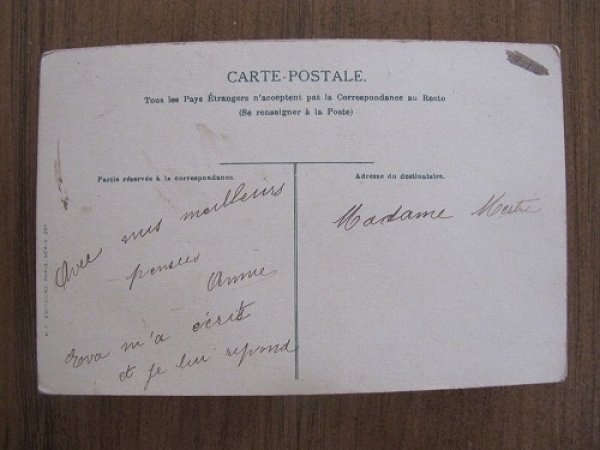 CARTE-POSTALE.
Tous les Pays Étrangers n'acceptent pas la Correspondance au Recto
(Se renseigner à la Poste)
Partie réservée à la correspondance.
Avec mes meilleurs
pensées
Annie
Eova m'a écrit
et je lui repond
Adresse du destinataire.
Madame Mestre